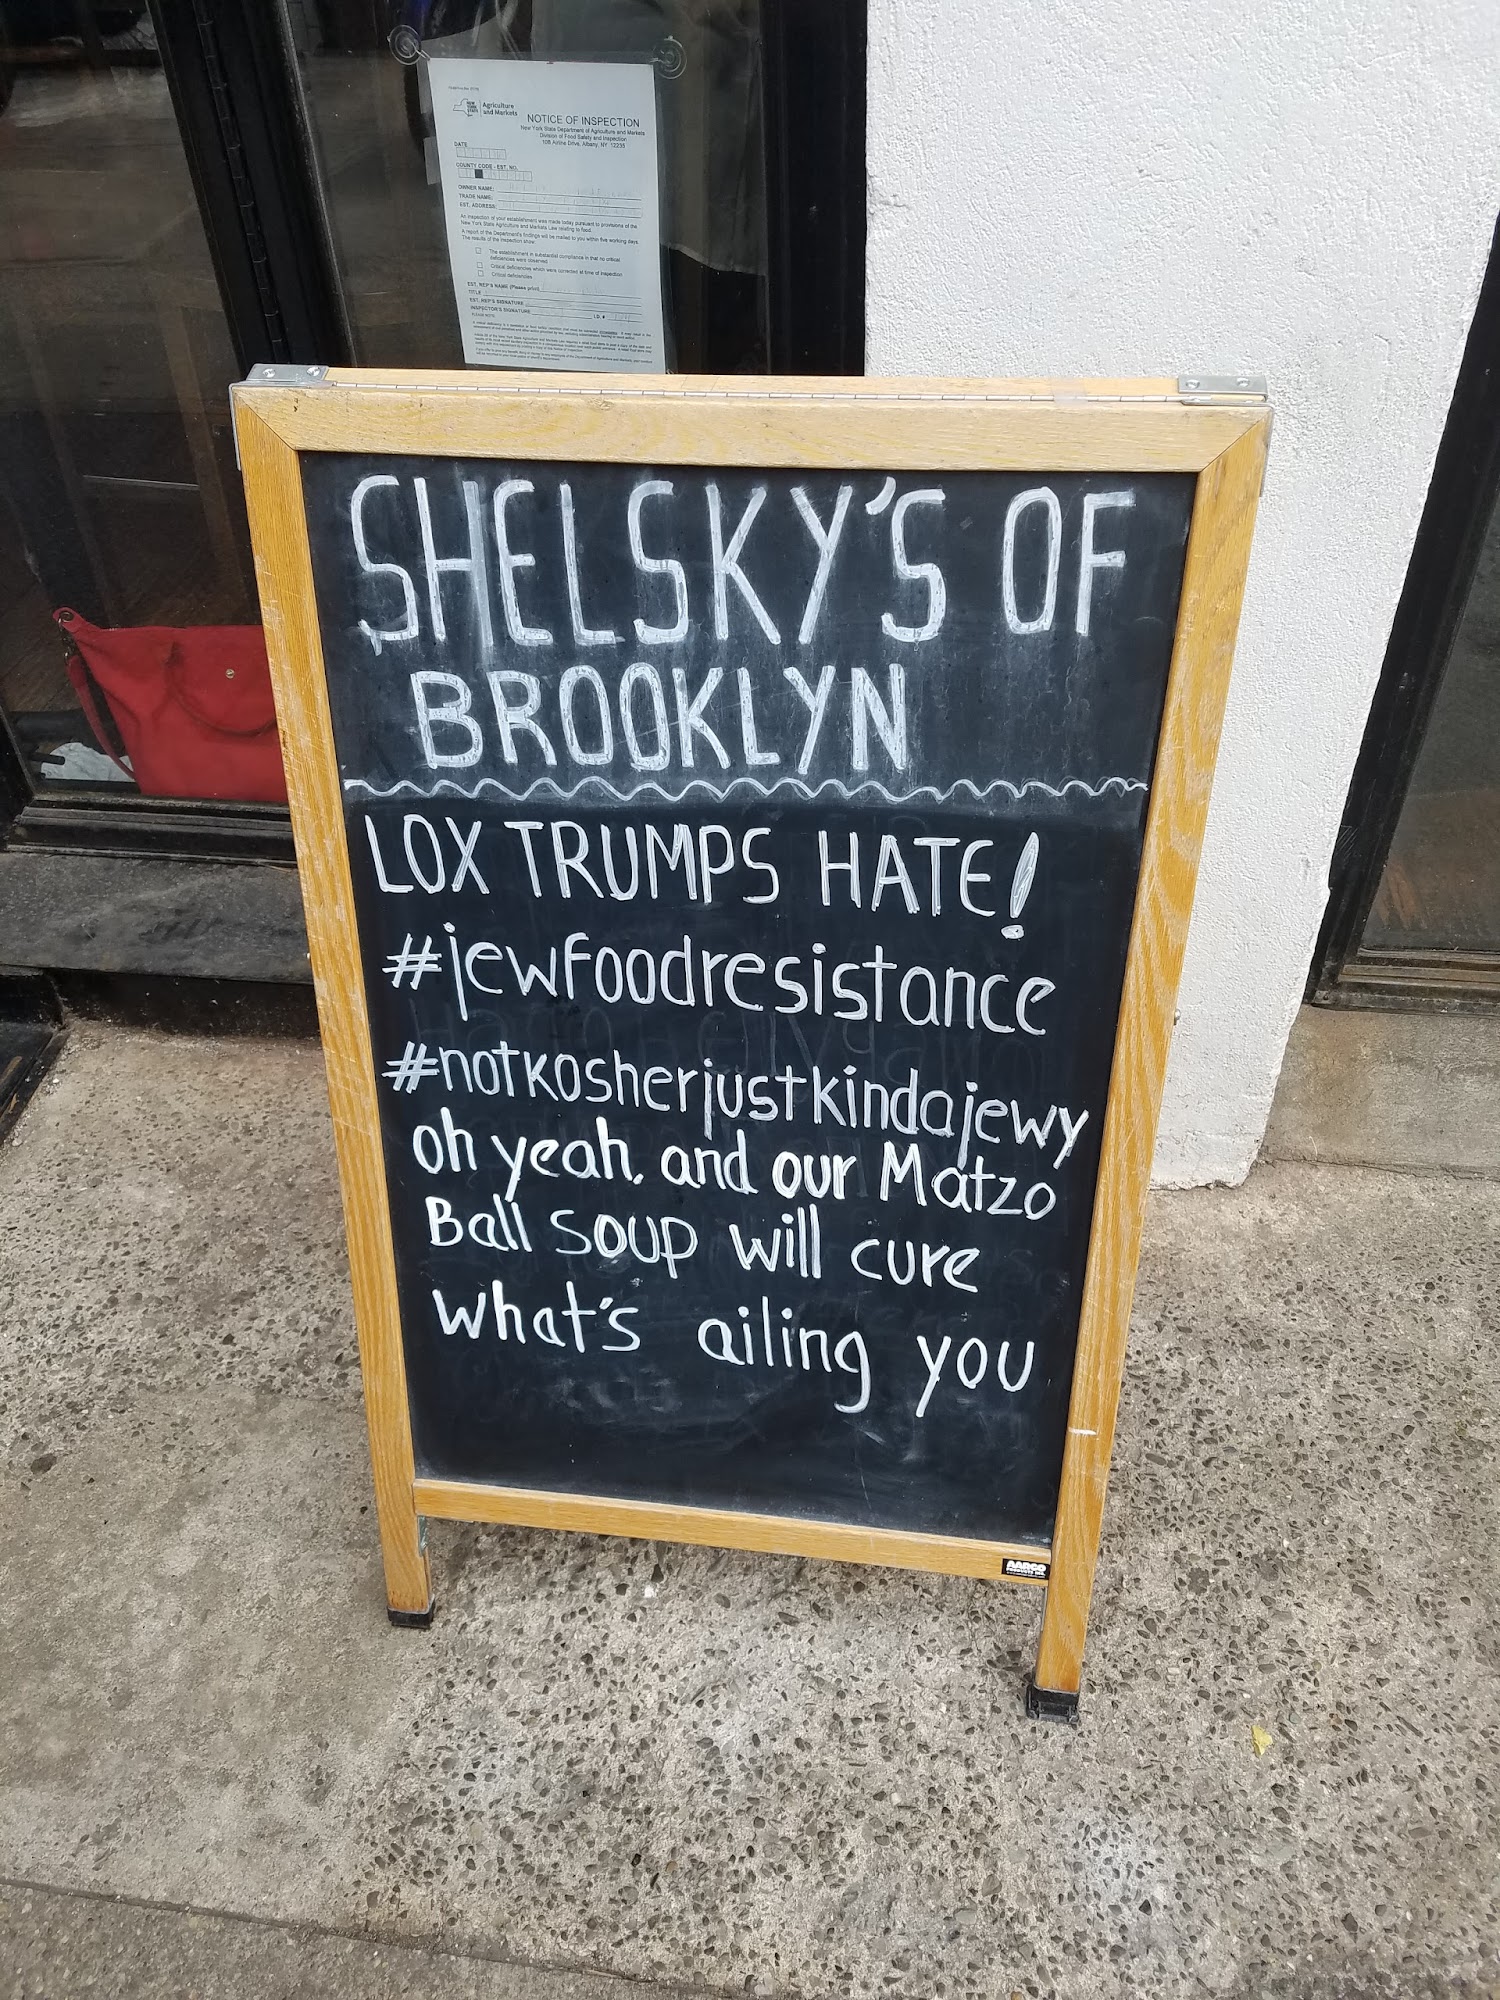 Agriculture
and Markets
NOTICE OF INSPECTION
New York State Department of Agriculture and Markets
Division of Food Safety and Inspection
10B Airline Drive, Albany, NY 12235
DATE
COUNTY CODE - EST. NO.
OWNER NAME:
TRADE NAME:
EST. ADDRESS:
An inspection of your establishment was made today pursuant to provisions of the
New York State Agriculture and Markets Law relating to food.
A report of the Department's findings will be mailed to you within five working days.
The results of the inspection show:
The establishment in substantial compliance in that no critical
deficiencies were observed
Critical deficiencies which were corrected at time of inspection
Critical deficiencies
EST. REP'S NAME (Please print)
TITLE
EST. REP'S SIGNATURE
INSPECTOR'S SIGNATURE I.D. #
PLEASE NOTE:
SHELSKY'S OF
BROOKLYN
LOX TRUMPS HATE!
#jewfoodresistance
#notkosherjustkindajewy
oh yeah, and our Matzo
Ball soup will cure
what's ailing you
AARCO
PRODUCTS INC.